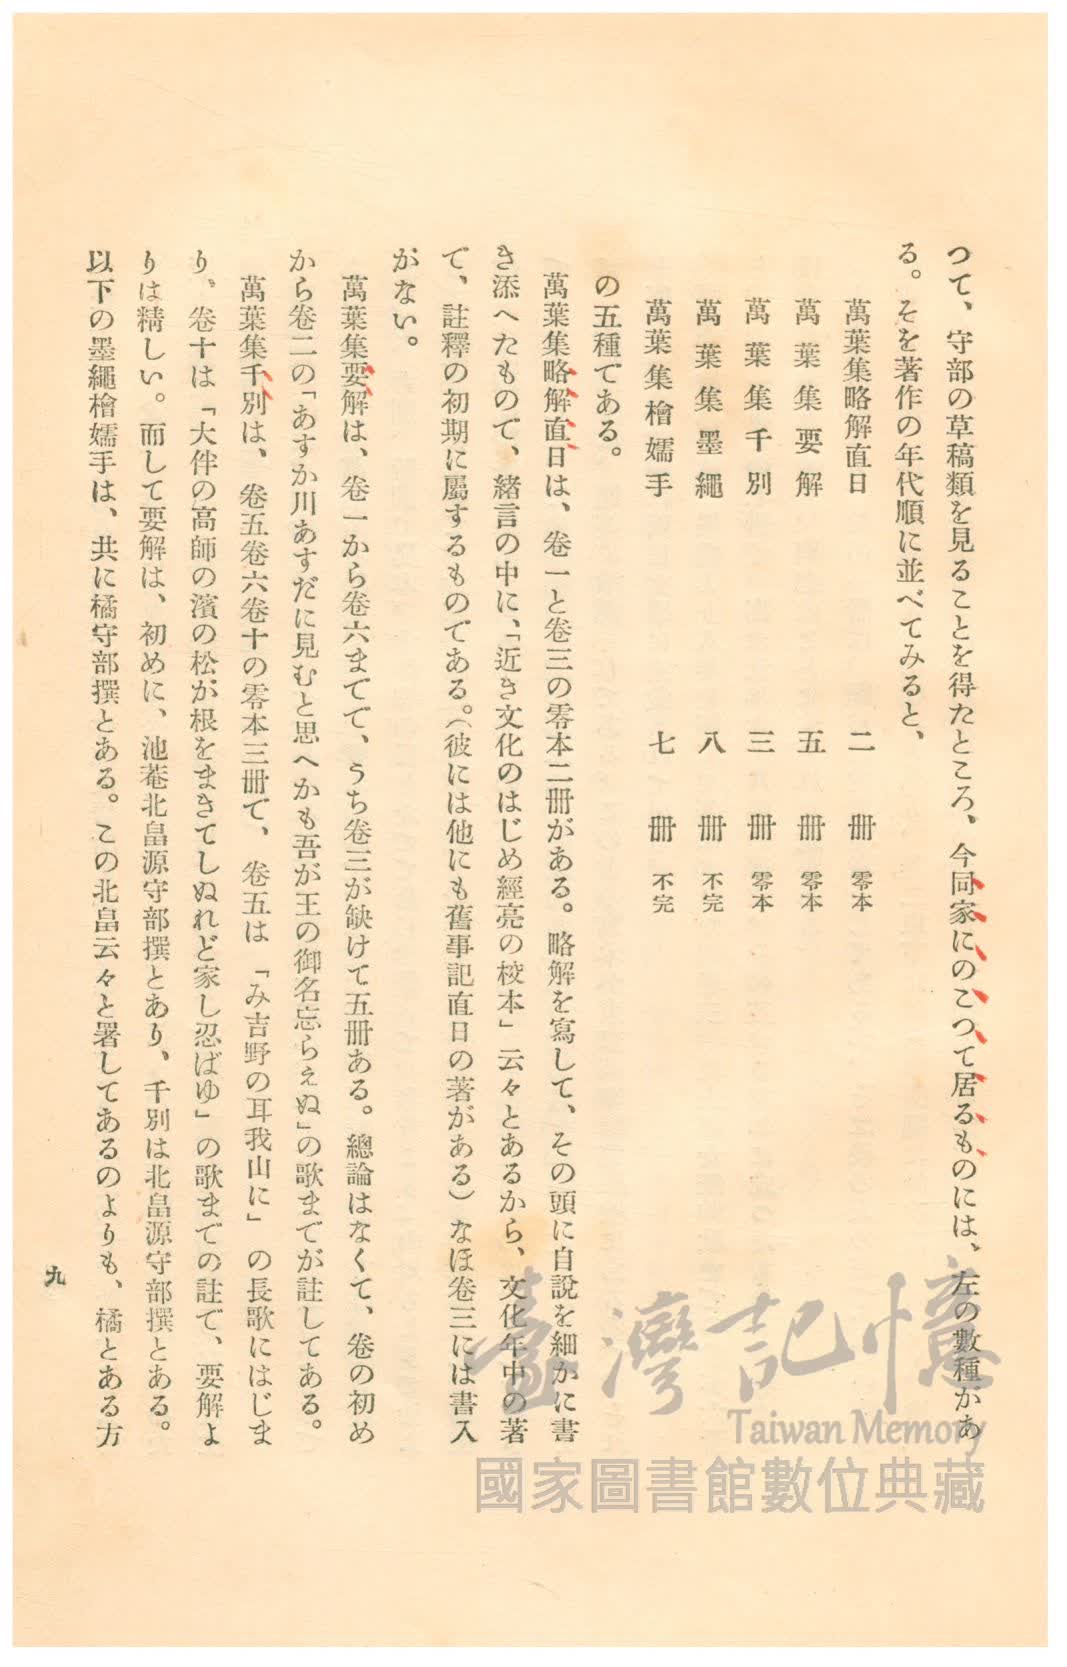 つて、守部の草稿類を見ることを得たところ、今同家にのこつて居るものには、左の數種があ
る。そを著作の年代順に並べてみると、
萬葉集略解直日　二冊　零本
萬葉集要解　五冊　零本
萬葉集千別　三冊　零本
萬葉集墨繩　八冊　不完
萬葉集檜嬬手　七冊　不完
の五種である。
萬葉集略解直日は、卷一と卷三の零本二冊がある。略解を寫して、その頭に自説を細かに書
き添へたもので、緒言の中に、「近き文化のはじめ經亮の校本」云々とあるから、文化年中の著
で、註釋の初期に屬するものである。（彼には他にも舊事記直日の著がある）なほ卷三には書入
がない。
萬葉集要解は、卷一から卷六までで、うち卷三が缺けて五冊ある。總論はなくて、卷の初め
から卷二の「あすか川あすだに見むと思へかも吾が王の御名忘らえぬ」の歌までが註してある。
萬葉集千別は、卷五卷六卷十の零本三冊で、卷五は「み吉野の耳我山に」の長歌にはじま
り、卷十は「大伴の高師の濱の松が根をまきてしぬれど家し忍ばゆ」の歌までの註で、要解よ
りは精しい。而して要解は、初めに、池菴北畠源守部撰とあり、千別は北畠源守部撰とある。
以下の墨繩檜嬬手は、共に橘守部撰とある。この北畠云々と署してあるのよりも、橘とある方
九
臺灣記憶
Taiwan Memory
國家圖書館數位典藏